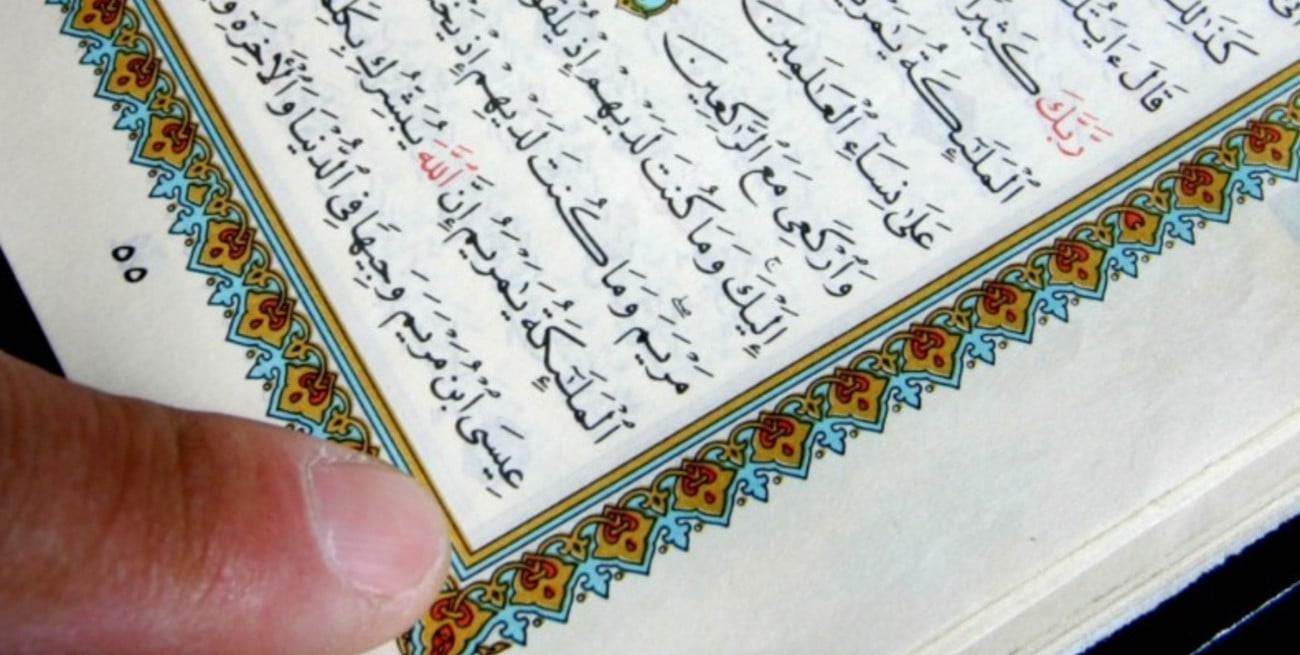 كَذَٰلِكَ
قَالَ ءَايَتُكَ
رَّبَّكَ كَثِيرًا
ٱلْمَلَٰٓئِكَةُ
عَلَىٰ نِسَآءِ ٱلْعَٰلَمِينَ
وَٱرْكَعِى مَعَ ٱلرَّٰكِعِينَ
إِلَيْكَ ۚ وَمَا كُنتَ لَدَيْهِمْ إِذْ
مَرْيَمَ ۖ وَمَا كُنتَ لَدَيْهِمْ إِذْ
ٱلْمَلَٰٓئِكَةُ يَٰمَرْيَمُ إِنَّ ٱللَّهَ يُبَشِّرُكِ
عِيسَى ٱبْنُ مَرْيَمَ وَجِيهًا فِى ٱلدُّنْيَا وَٱلْأَخِرَةِ
٥٥